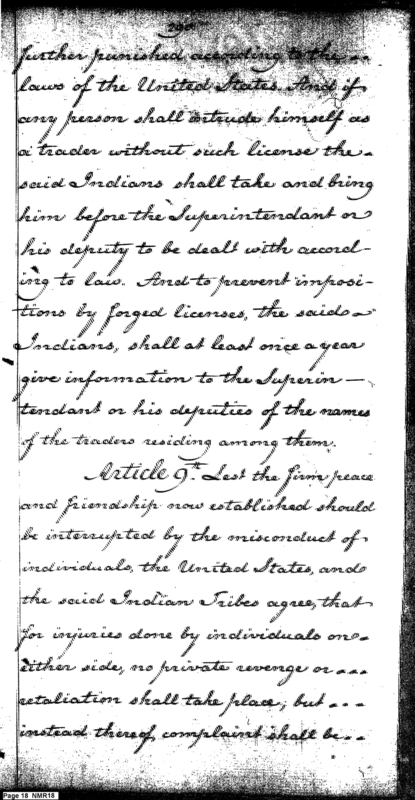 290
further punished according to the
laws of the United States. And if
any person shall intrude himself as
a trader without such license the
said Indians shall take and bring
him before the Superintendant or
his deputy to be dealt with accord-
ing to law. And to prevent imposi-
tions by forged licenses, the said
Indians, shall at least once a year
give information to the Superin-
tendant or his deputies of the names
of the traders residing among them.
Article 9th. Lest the firm peace
and friendship now established should
be interrupted by the misconduct of
individuals, the United States, and
the said Indian Tribes agree, that
for injuries done by individuals on
either side, no private revenge or
retaliation shall take place; but
instead thereof, complaint shall be
Page 18 NMR18